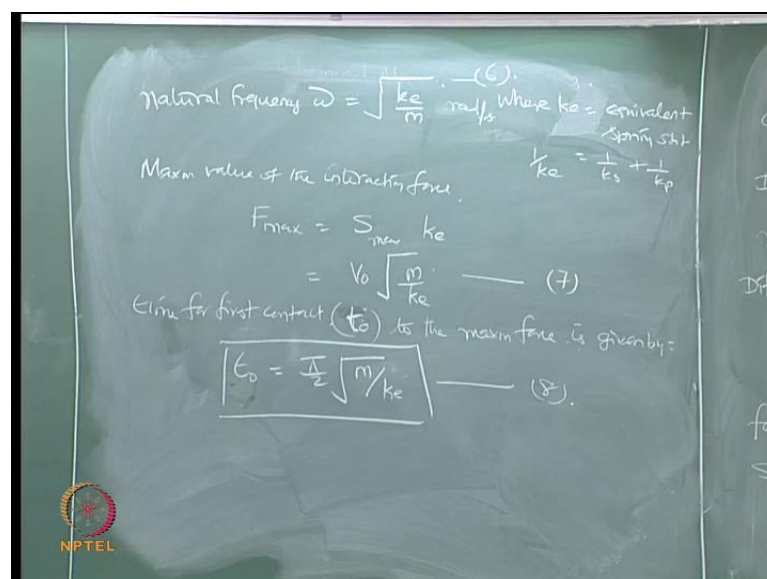 Natural frequency ω = √(ke/m) rad/s —(6). where ke = equivalent
spring stif
1/ke = 1/ks + 1/kp
Maxm value of the interaction force.
Fmax = Smax ke
= V0 √(m/ke) —— (7)
time for first contact (to) to the maxm force is given by =
to = π/2 √m/ke —— (8).
NPTEL